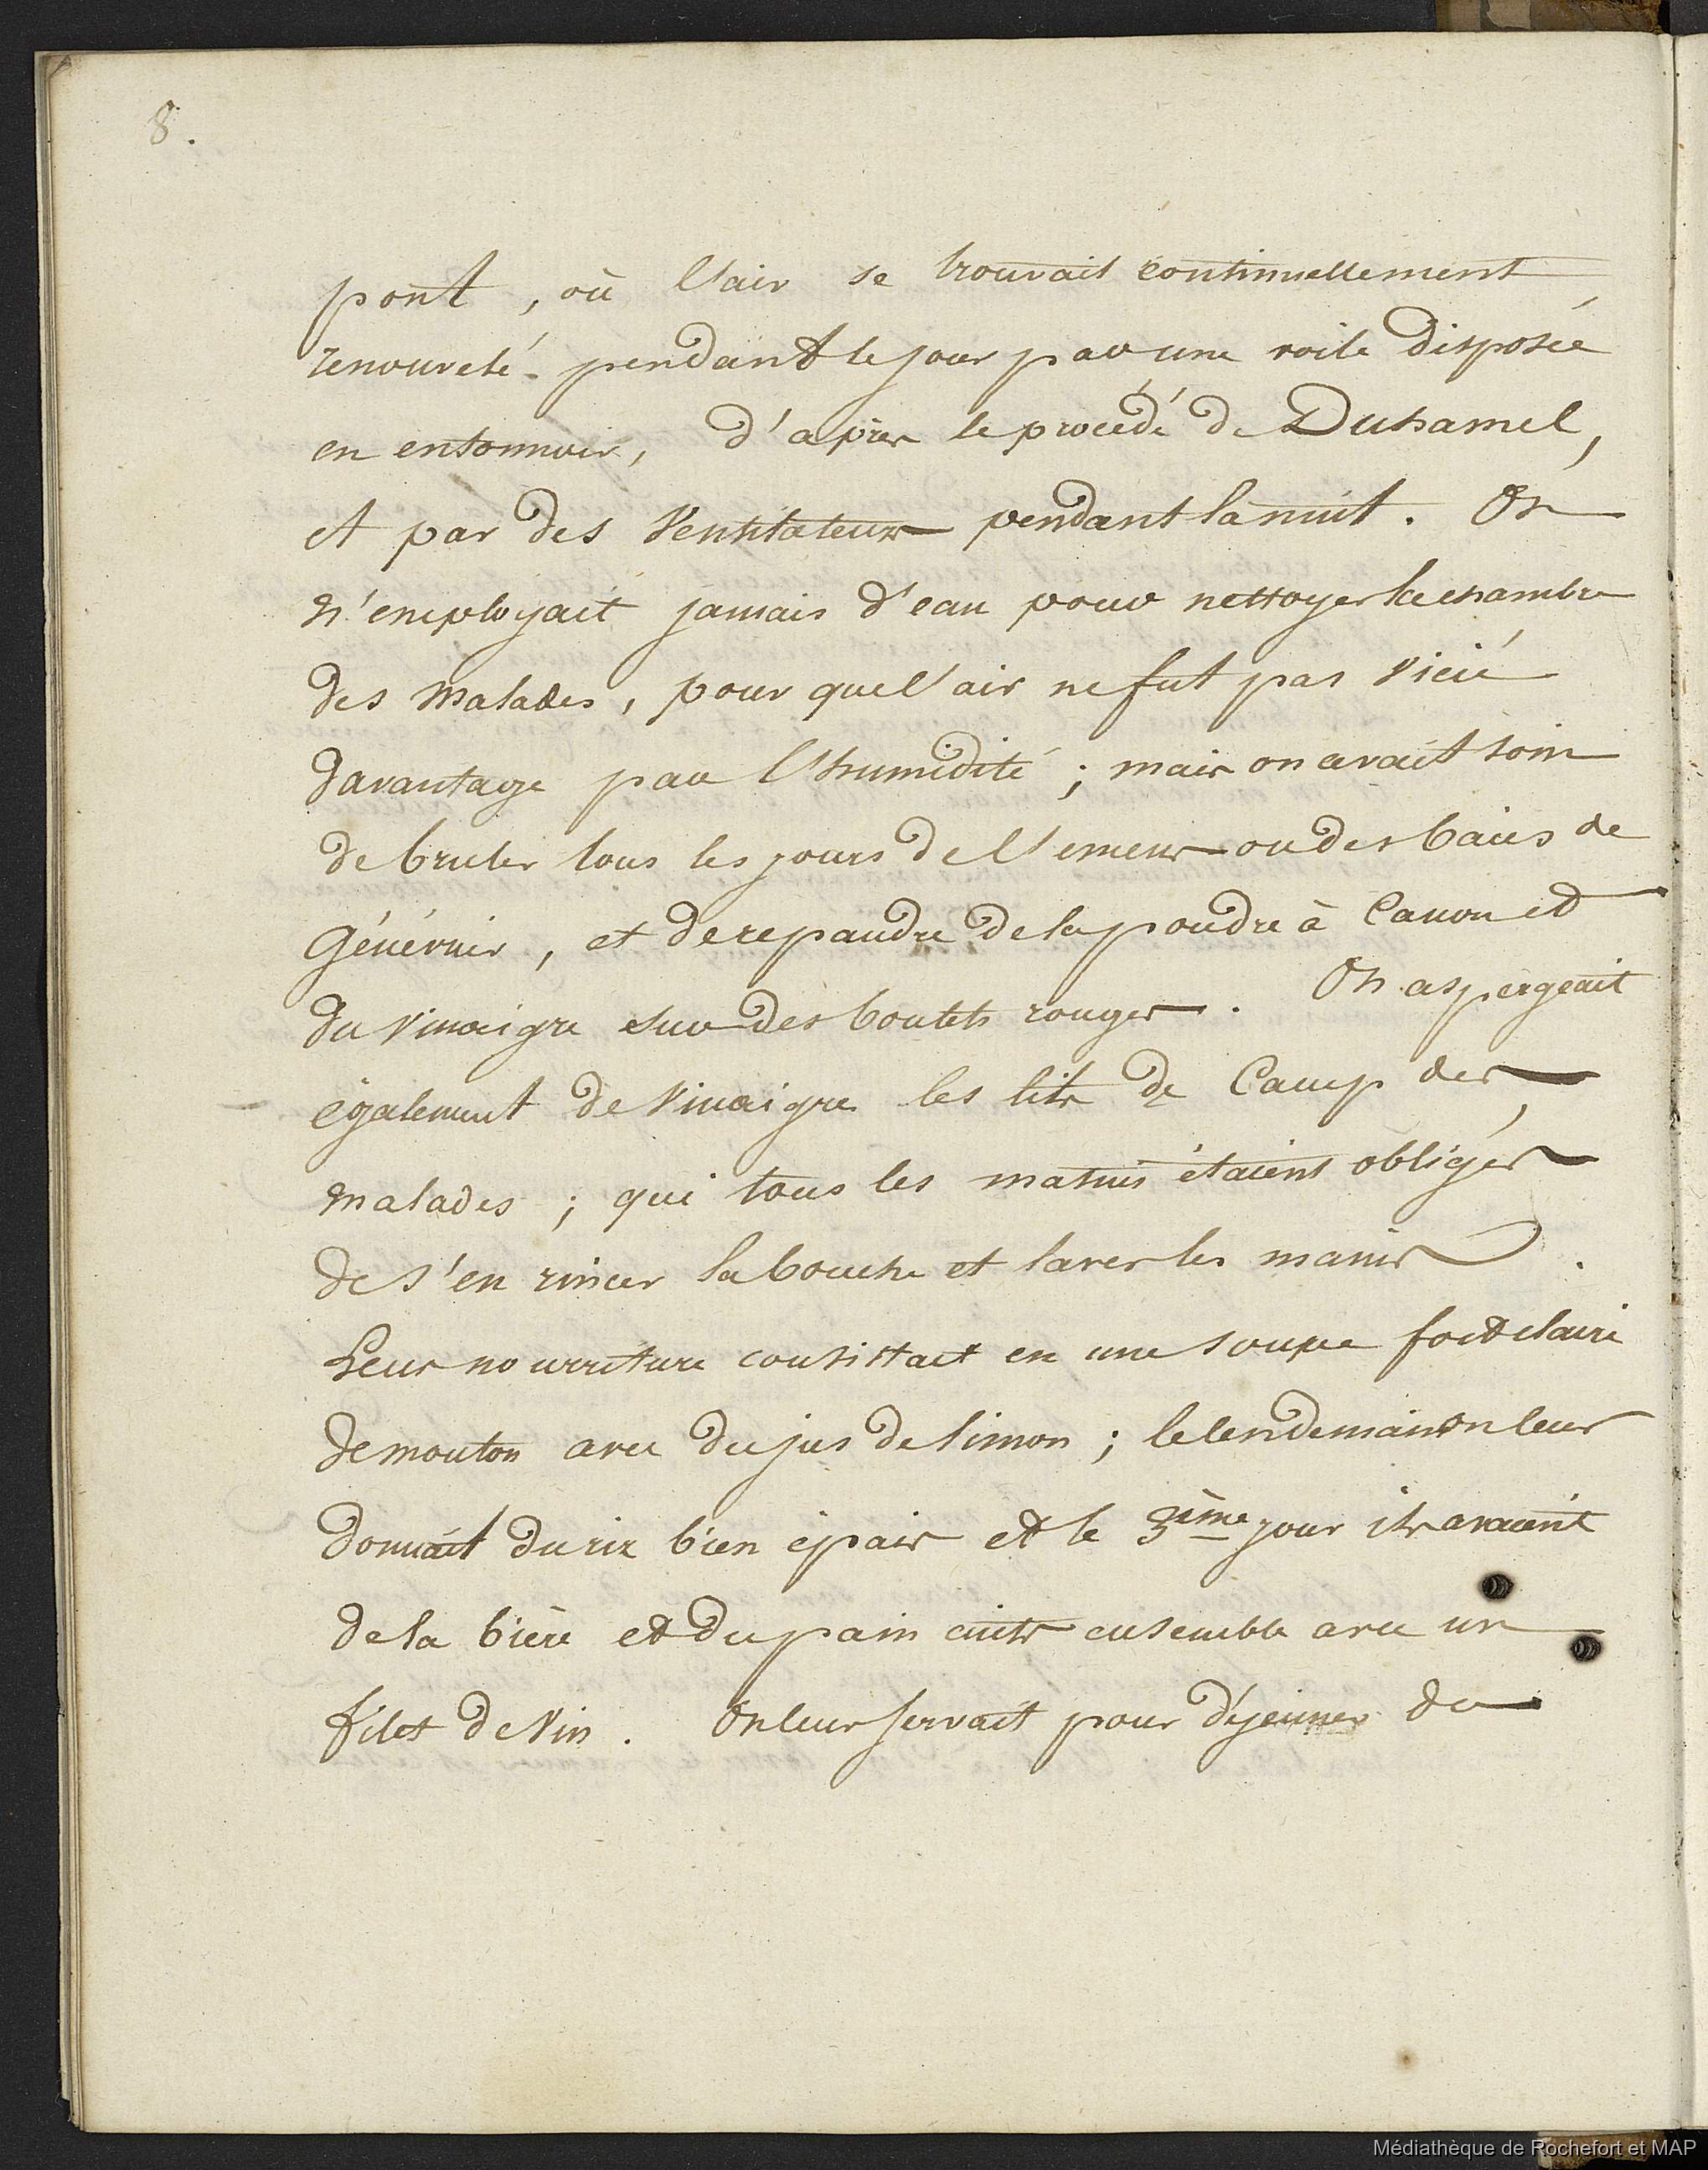 8.
pont, où l'air se trouvait continuellement
renouvelé pendant le jour par une voile disposée
en entonnoir, d'après le procédé de Duhamel,
et par des ventilateurs pendant la nuit. On
n'employait jamais d'eau pour nettoyer la chambre
des malades, pour que l'air ne fut pas vicié
davantage par l'humidité ; mais on avait soin
de bruler tous les jours de l'encens ou des baies de
Génévrier, et de repandre de la poudre à Canon et
du vinaigre sur des boulets rouges. On aspergeait
également de vinaigre les lits de Camp des
malades ; qui tous les matins étaient obligés
de s'en rincer la bouche et laver les mains.
Leur nourriture consistait en une soupe fort claire
de mouton avec du jus de limon ; le lendemain on leur
donnait du riz bien épais et le 3ième jour ils avaient
de la bière et du pain cuits ensemble avec un
filet de vin. On leur servait pour déjeuner du
Médiathèque de Rochefort et MAP